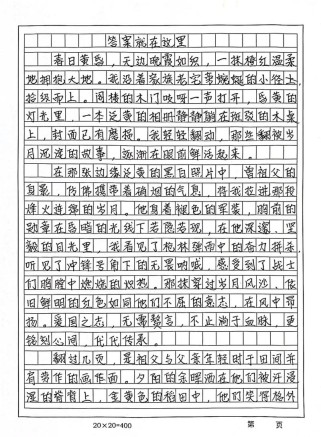 答案就在这里
春日黄昏，天边晚霞如织，一抹橙红温柔
地拥抱大地。我沿着家族老宅旁蜿蜒的小径上，
拾级而上。阁楼的木门吱呀一声打开，昏黄的
灯光里，一本泛黄的相册静静躺在斑驳的木桌
上，封面已有磨损。我轻轻翻动，那些翻被岁
月沉淀的故事，逐渐在眼前鲜活起来。
在那张边缘泛黄的黑白照片中，曾祖父的
身影，仿佛携带着硝烟的气息，将我拉进那段
烽火连绵的岁月。他身着褪色的军装，胸前的
勋章在昏暗的光线下若隐若现，在他深邃、坚
毅的目光里，我看见了枪林弹雨中的奋力拼杀，
听见了冲锋号角下的无畏呐喊，感受到了战士
们胸膛中燃烧的炽热。那抹穿过岁月风沙、依
旧鲜明的红色如同他们不屈的意志，在风中昂
扬。爱国之志，无需赘言，不止淌于血脉，更
铭刻心间，代代传承。
翻过几页，是祖父与父亲年轻时于田间并
肩劳作的画作面。夕阳的余晖洒在他们被汗浸
湿的脊背上，金黄色的稻田中，他们笑得格外
20×20=400
第 页